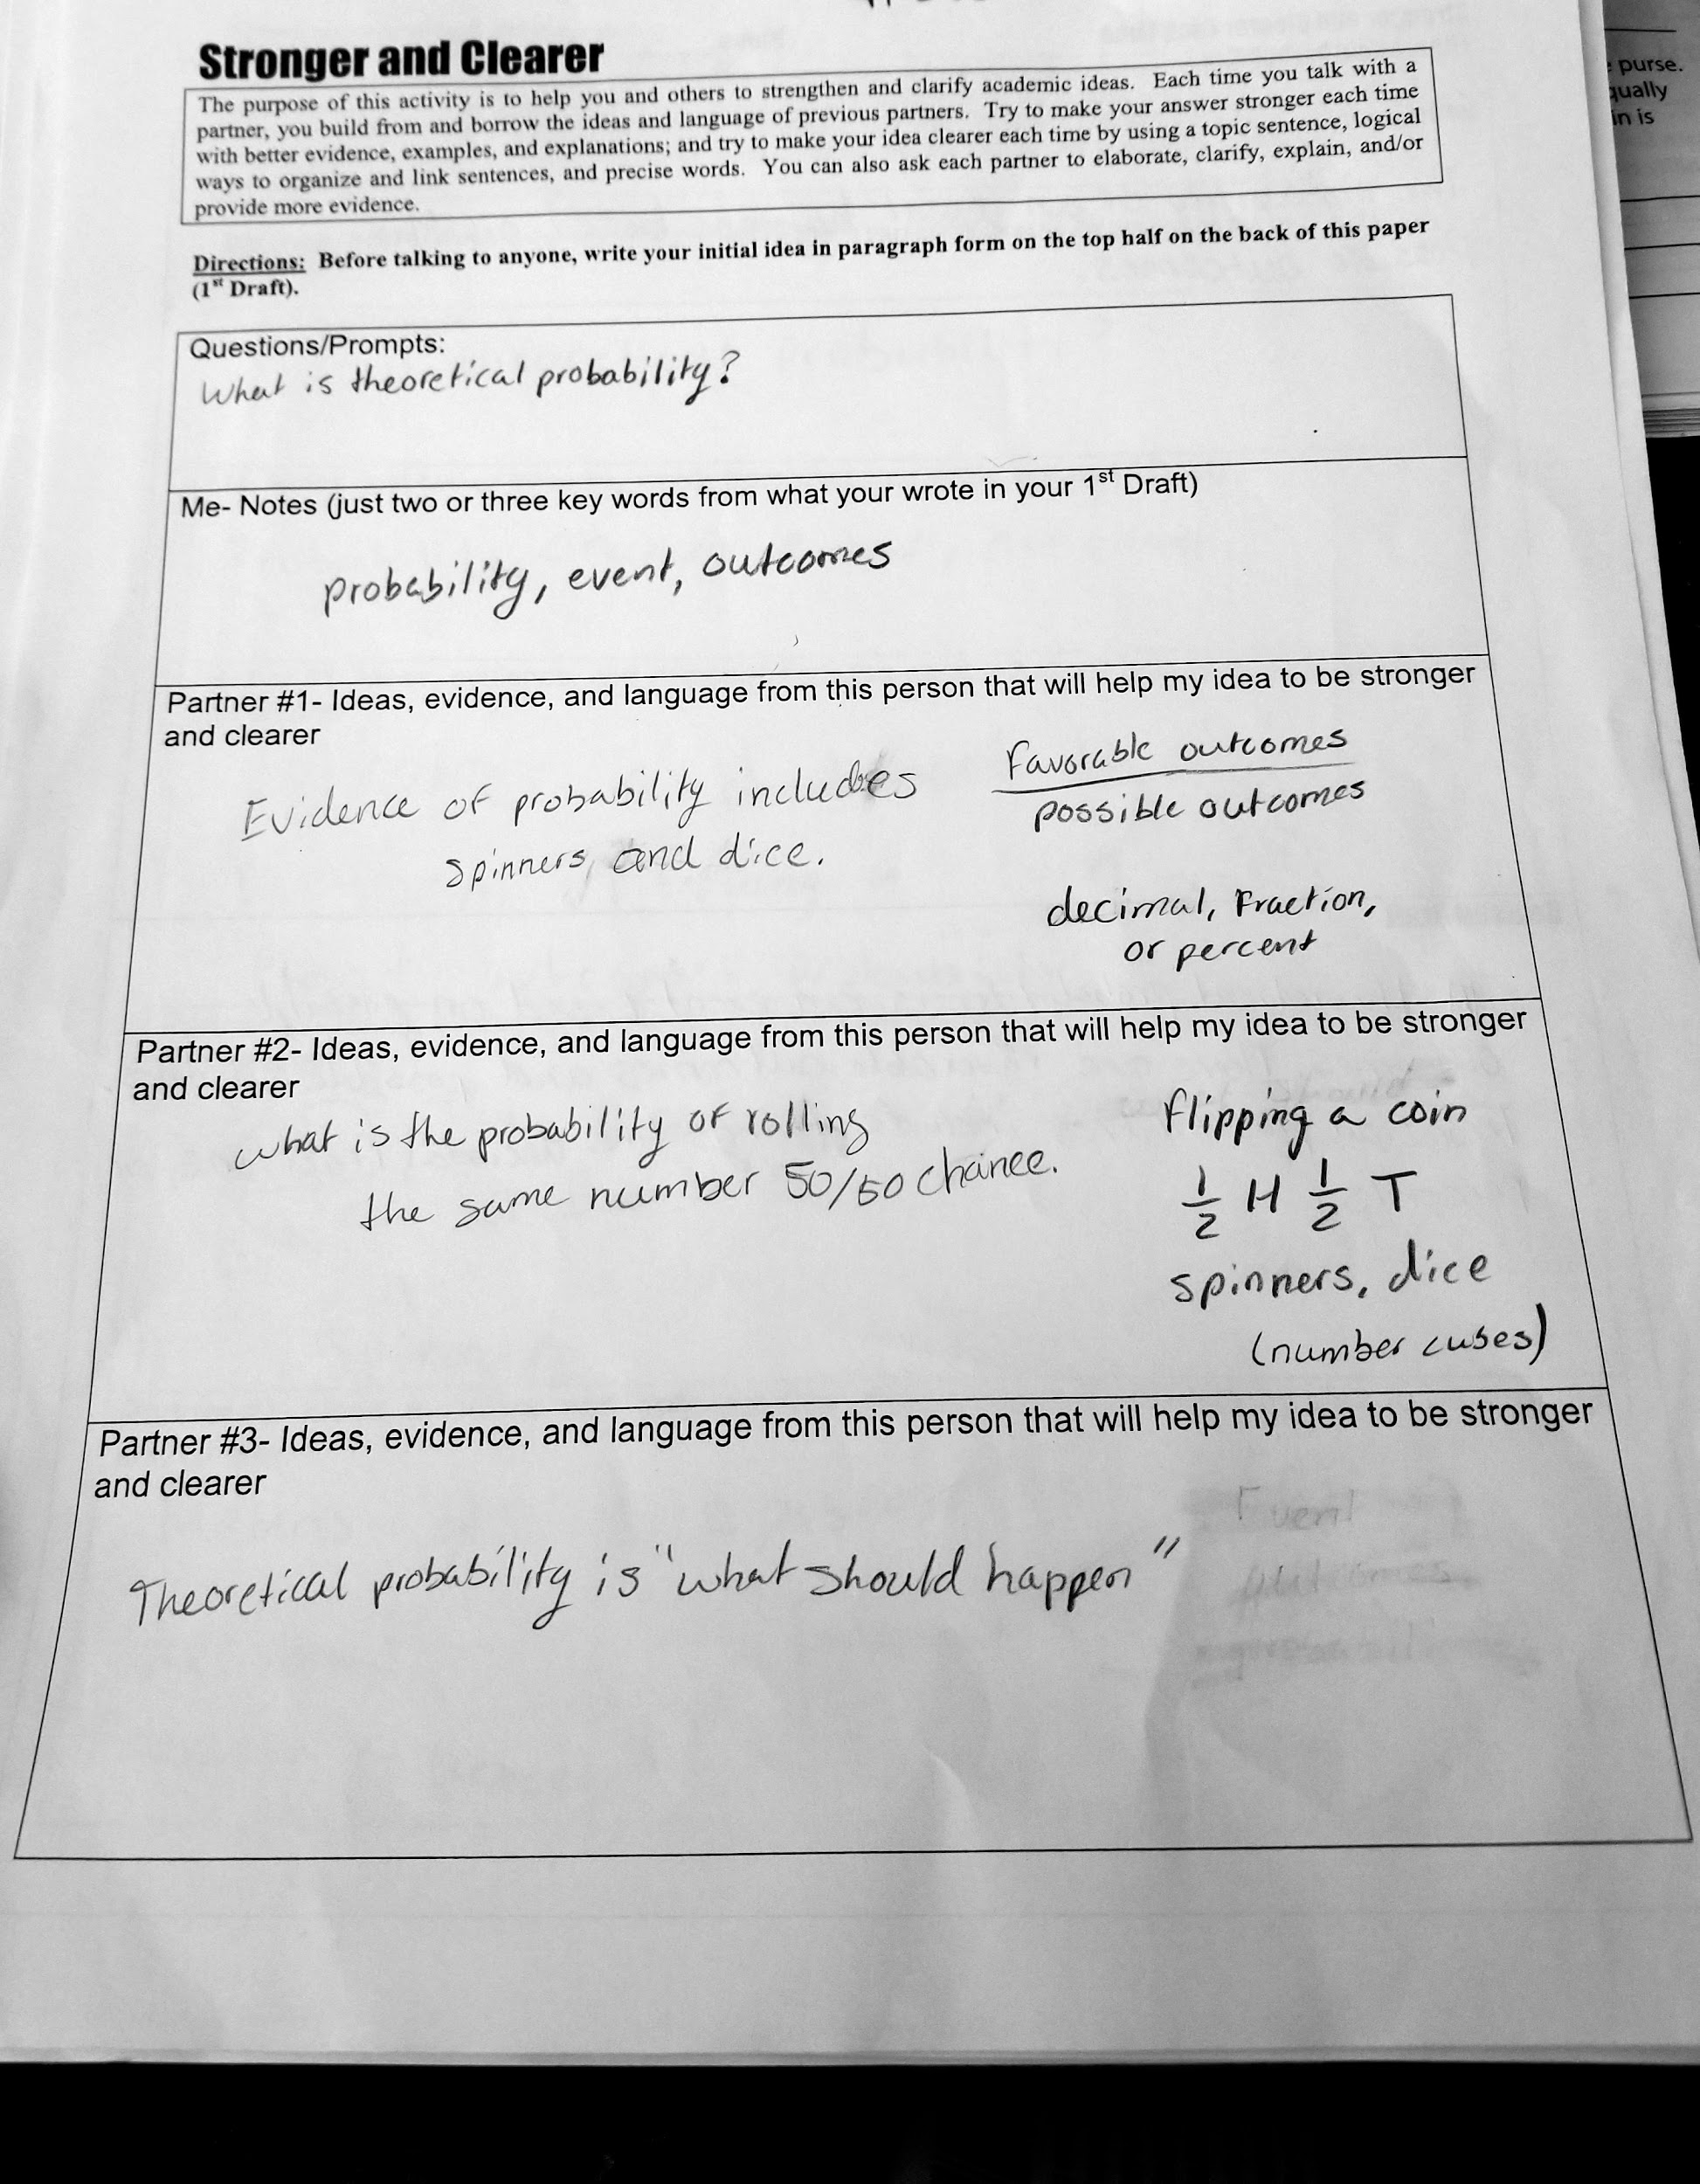 Stronger and Clearer
The purpose of this activity is to help you and others to strengthen and clarify academic ideas. Each time you talk with a
partner, you build from and borrow the ideas and language of previous partners. Try to make your answer stronger each time
with better evidence, examples, and explanations; and try to make your idea clearer each time by using a topic sentence, logical
ways to organize and link sentences, and precise words. You can also ask each partner to elaborate, clarify, explain, and/or
provide more evidence.
Directions: Before talking to anyone, write your initial idea in paragraph form on the top half on the back of this paper
(1st Draft).
Questions/Prompts:
What is theoretical probability?
Me- Notes (just two or three key words from what your wrote in your 1st Draft)
probability, event, outcomes
Partner #1- Ideas, evidence, and language from this person that will help my idea to be stronger
and clearer
Evidence of probability includes
spinners and dice.
Favorable outcomes
possible outcomes
decimal, Fraction,
or percent
Partner #2- Ideas, evidence, and language from this person that will help my idea to be stronger
and clearer
what is the probability of rolling
the same number 50/50 chance.
flipping a coin
1/2 H 1/2 T
spinners, dice
(number cubes)
Partner #3- Ideas, evidence, and language from this person that will help my idea to be stronger
and clearer
Theoretical probability is "what should happen"
Event
outcomes
purse.
qually
in is